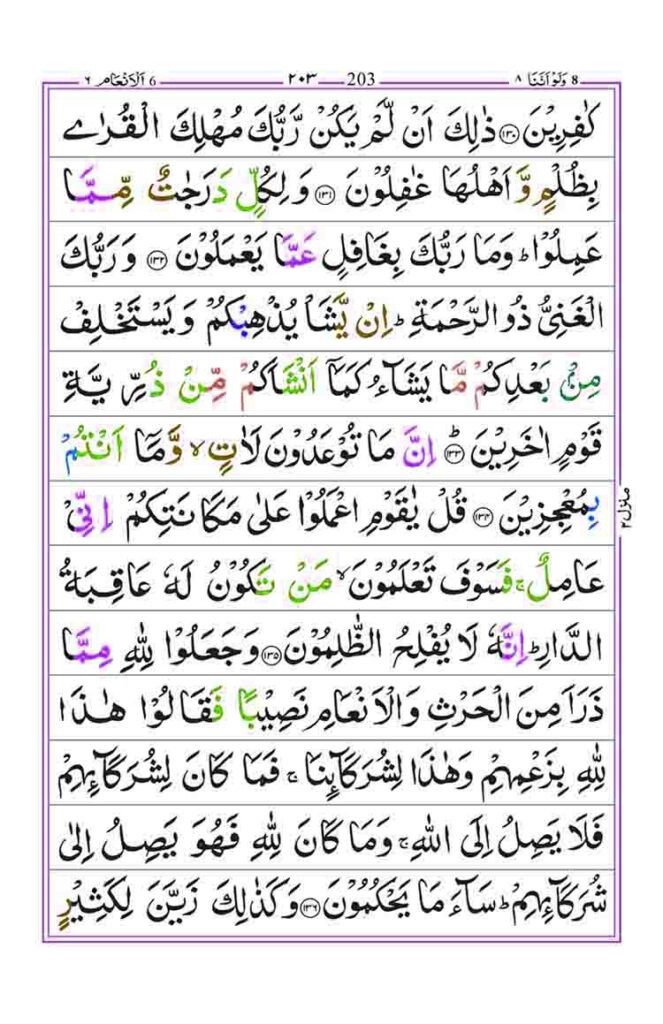 8 وَلَوْ اَنَّنَا ٨ 203 ٢٠٣ 6 اَلْاَنْعَام ٦
كٰفِرِيْنَ ۝١٣٠ ذٰلِكَ اَنْ لَّمْ يَكُنْ رَّبُّكَ مُهْلِكَ الْقُرٰى
بِظُلْمٍ وَّاَهْلُهَا غٰفِلُوْنَ ۝١٣١ وَلِكُلٍّ دَرَجٰتٌ مِّمَّا
عَمِلُوْا ؕ وَمَا رَبُّكَ بِغَافِلٍ عَمَّا يَعْمَلُوْنَ ۝١٣٢ وَرَبُّكَ
الْغَنِىُّ ذُو الرَّحْمَةِ ؕ اِنْ يَّشَاْ يُذْهِبْكُمْ وَيَسْتَخْلِفْ
مِنْۢ بَعْدِكُمْ مَّا يَشَآءُ كَمَاۤ اَنْشَاَكُمْ مِّنْ ذُرِّيَّةِ
قَوْمٍ اٰخَرِيْنَ ؕ۝١٣٣ اِنَّ مَا تُوْعَدُوْنَ لَاٰتٍ ۙ وَّمَاۤ اَنْتُمْ
بِمُعْجِزِيْنَ ۝١٣٤ قُلْ يٰقَوْمِ اعْمَلُوْا عَلٰى مَكَانَتِكُمْ اِنِّىْ
عَامِلٌ ۚ فَسَوْفَ تَعْلَمُوْنَ ۙ مَنْ تَكُوْنُ لَهٗ عَاقِبَةُ
الدَّارِ ؕ اِنَّهٗ لَا يُفْلِحُ الظّٰلِمُوْنَ ۝١٣٥ وَجَعَلُوْا لِلّٰهِ مِمَّا
ذَرَاَ مِنَ الْحَرْثِ وَالْاَنْعَامِ نَصِيْبًا فَقَالُوْا هٰذَا
لِلّٰهِ بِزَعْمِهِمْ وَهٰذَا لِشُرَكَآئِنَا ۚ فَمَا كَانَ لِشُرَكَآئِهِمْ
فَلَا يَصِلُ اِلَى اللّٰهِ ۚ وَمَا كَانَ لِلّٰهِ فَهُوَ يَصِلُ اِلٰى
شُرَكَآئِهِمْ ؕ سَآءَ مَا يَحْكُمُوْنَ ۝١٣٦ وَكَذٰلِكَ زَيَّنَ لِكَثِيْرٍ
منزل ٢